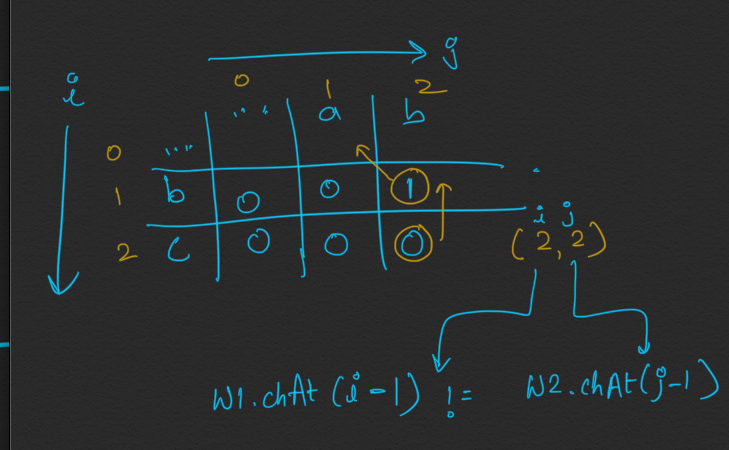 j
i
0 1 2
"" a b
0 ""
1 b 0 0 1
i j
2 c 0 0 0 (2,2)
W1.chAt(i-1) != W2.chAt(j-1)